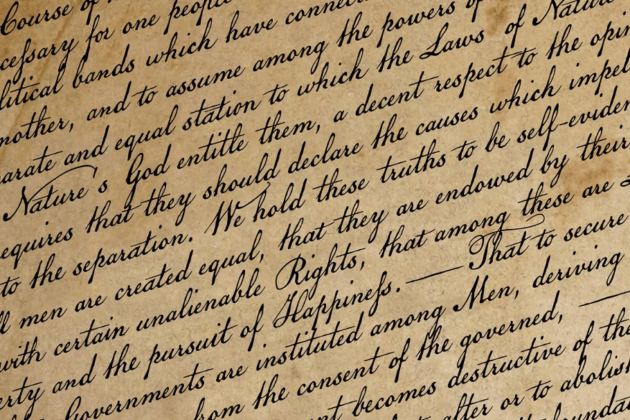 Course of
ceſsary for one people
litical bands which have connec
nother, and to assume among the powers of
parate and equal station to which the Laws of Nature
Nature's God entitle them, a decent respect to the opin
equires that they should declare the causes which impel
to the separation. We hold these truths to be self-eviden
ll men are created equal, that they are endowed by their
with certain unalienable Rights, that among these are
erty and the pursuit of Happineſs. — That to secure
Governments are instituted among Men, deriving
rom the consent of the governed, —
nt becomes destructive of the
alter or to abolish